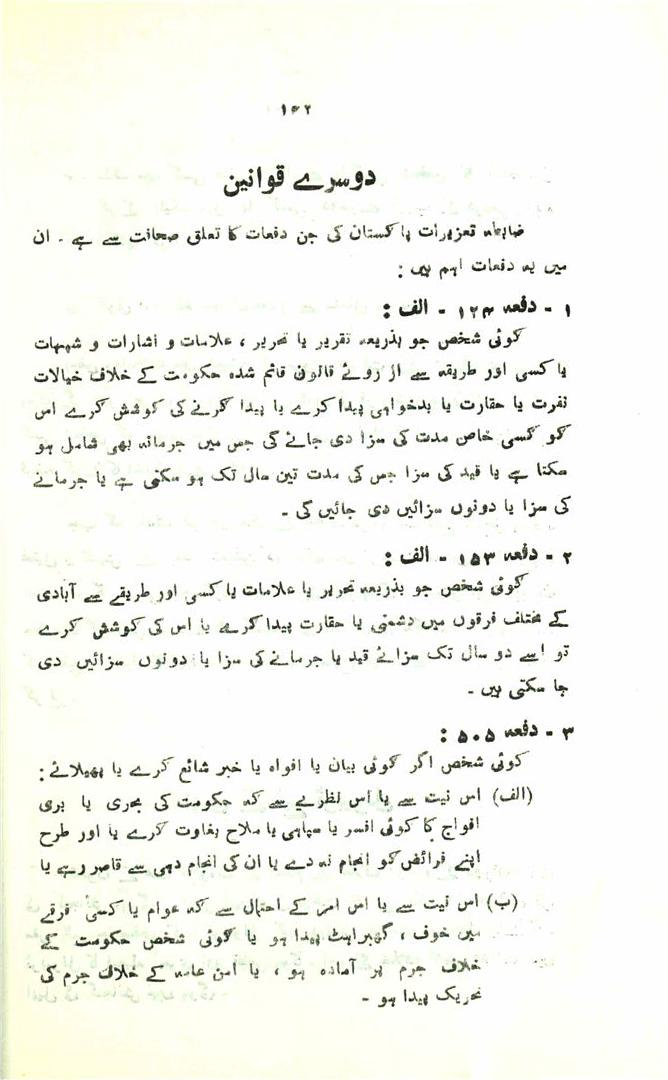 ۱۶۲
دوسرے قوانین
ضابطہ تعزیرات پاکستان کی جن دفعات کا تعلق صحافت سے ہے ۔ ان
میں یہ دفعات اہم ہیں :
۱ ۔ دفعہ ۱۲۴ ۔ الف :
کوئی شخص جو بذریعہ تقریر یا تحریر ، علامات و اشارات و شبیہات
یا کسی اور طریقہ سے از روئے قانون قائم شدہ حکومت کے خلاف خیالات
نفرت یا حقارت یا بدخواہی پیدا کرے یا پیدا کرنے کی کوشش کرے اس
کو کسی خاص مدت کی سزا دی جائے گی جس میں جرمانہ بھی شامل ہو
سکتا ہے یا قید کی سزا جس کی مدت تین سال تک ہو سکتی ہے یا جرمانے
کی سزا یا دونوں سزائیں دی جائیں گی ۔
۲ ۔ دفعہ ۱۵۳ ۔ الف :
کوئی شخص جو بذریعہ تحریر یا علامات یا کسی اور طریقے سے آبادی
کے مختلف فرقوں میں دشمنی یا حقارت پیدا کرے یا اس کی کوشش کرے
تو اسے دو سال تک سزائے قید یا جرمانے کی سزا یا دونوں سزائیں دی
جا سکتی ہیں ۔
۳ ۔ دفعہ ۵۰۵ :
کوئی شخص اگر کوئی بیان یا افواہ یا خبر شائع کرے یا پھیلائے :
(الف) اس نیت سے یا اس نظریے سے کہ حکومت کی بحری یا بری
افواج کا کوئی افسر یا سپاہی یا ملاح بغاوت کرے یا اور طرح
اپنے فرائض کو انجام نہ دے یا ان کی انجام دہی سے قاصر رہے یا
(ب) اس نیت سے یا اس امر کے احتمال سے کہ عوام یا کسی فرقے
میں خوف ، گھبراہٹ پیدا ہو یا کوئی شخص حکومت کے
خلاف جرم پر آمادہ ہو ، یا امن عامہ کے خلاف جرم کی
تحریک پیدا ہو ۔